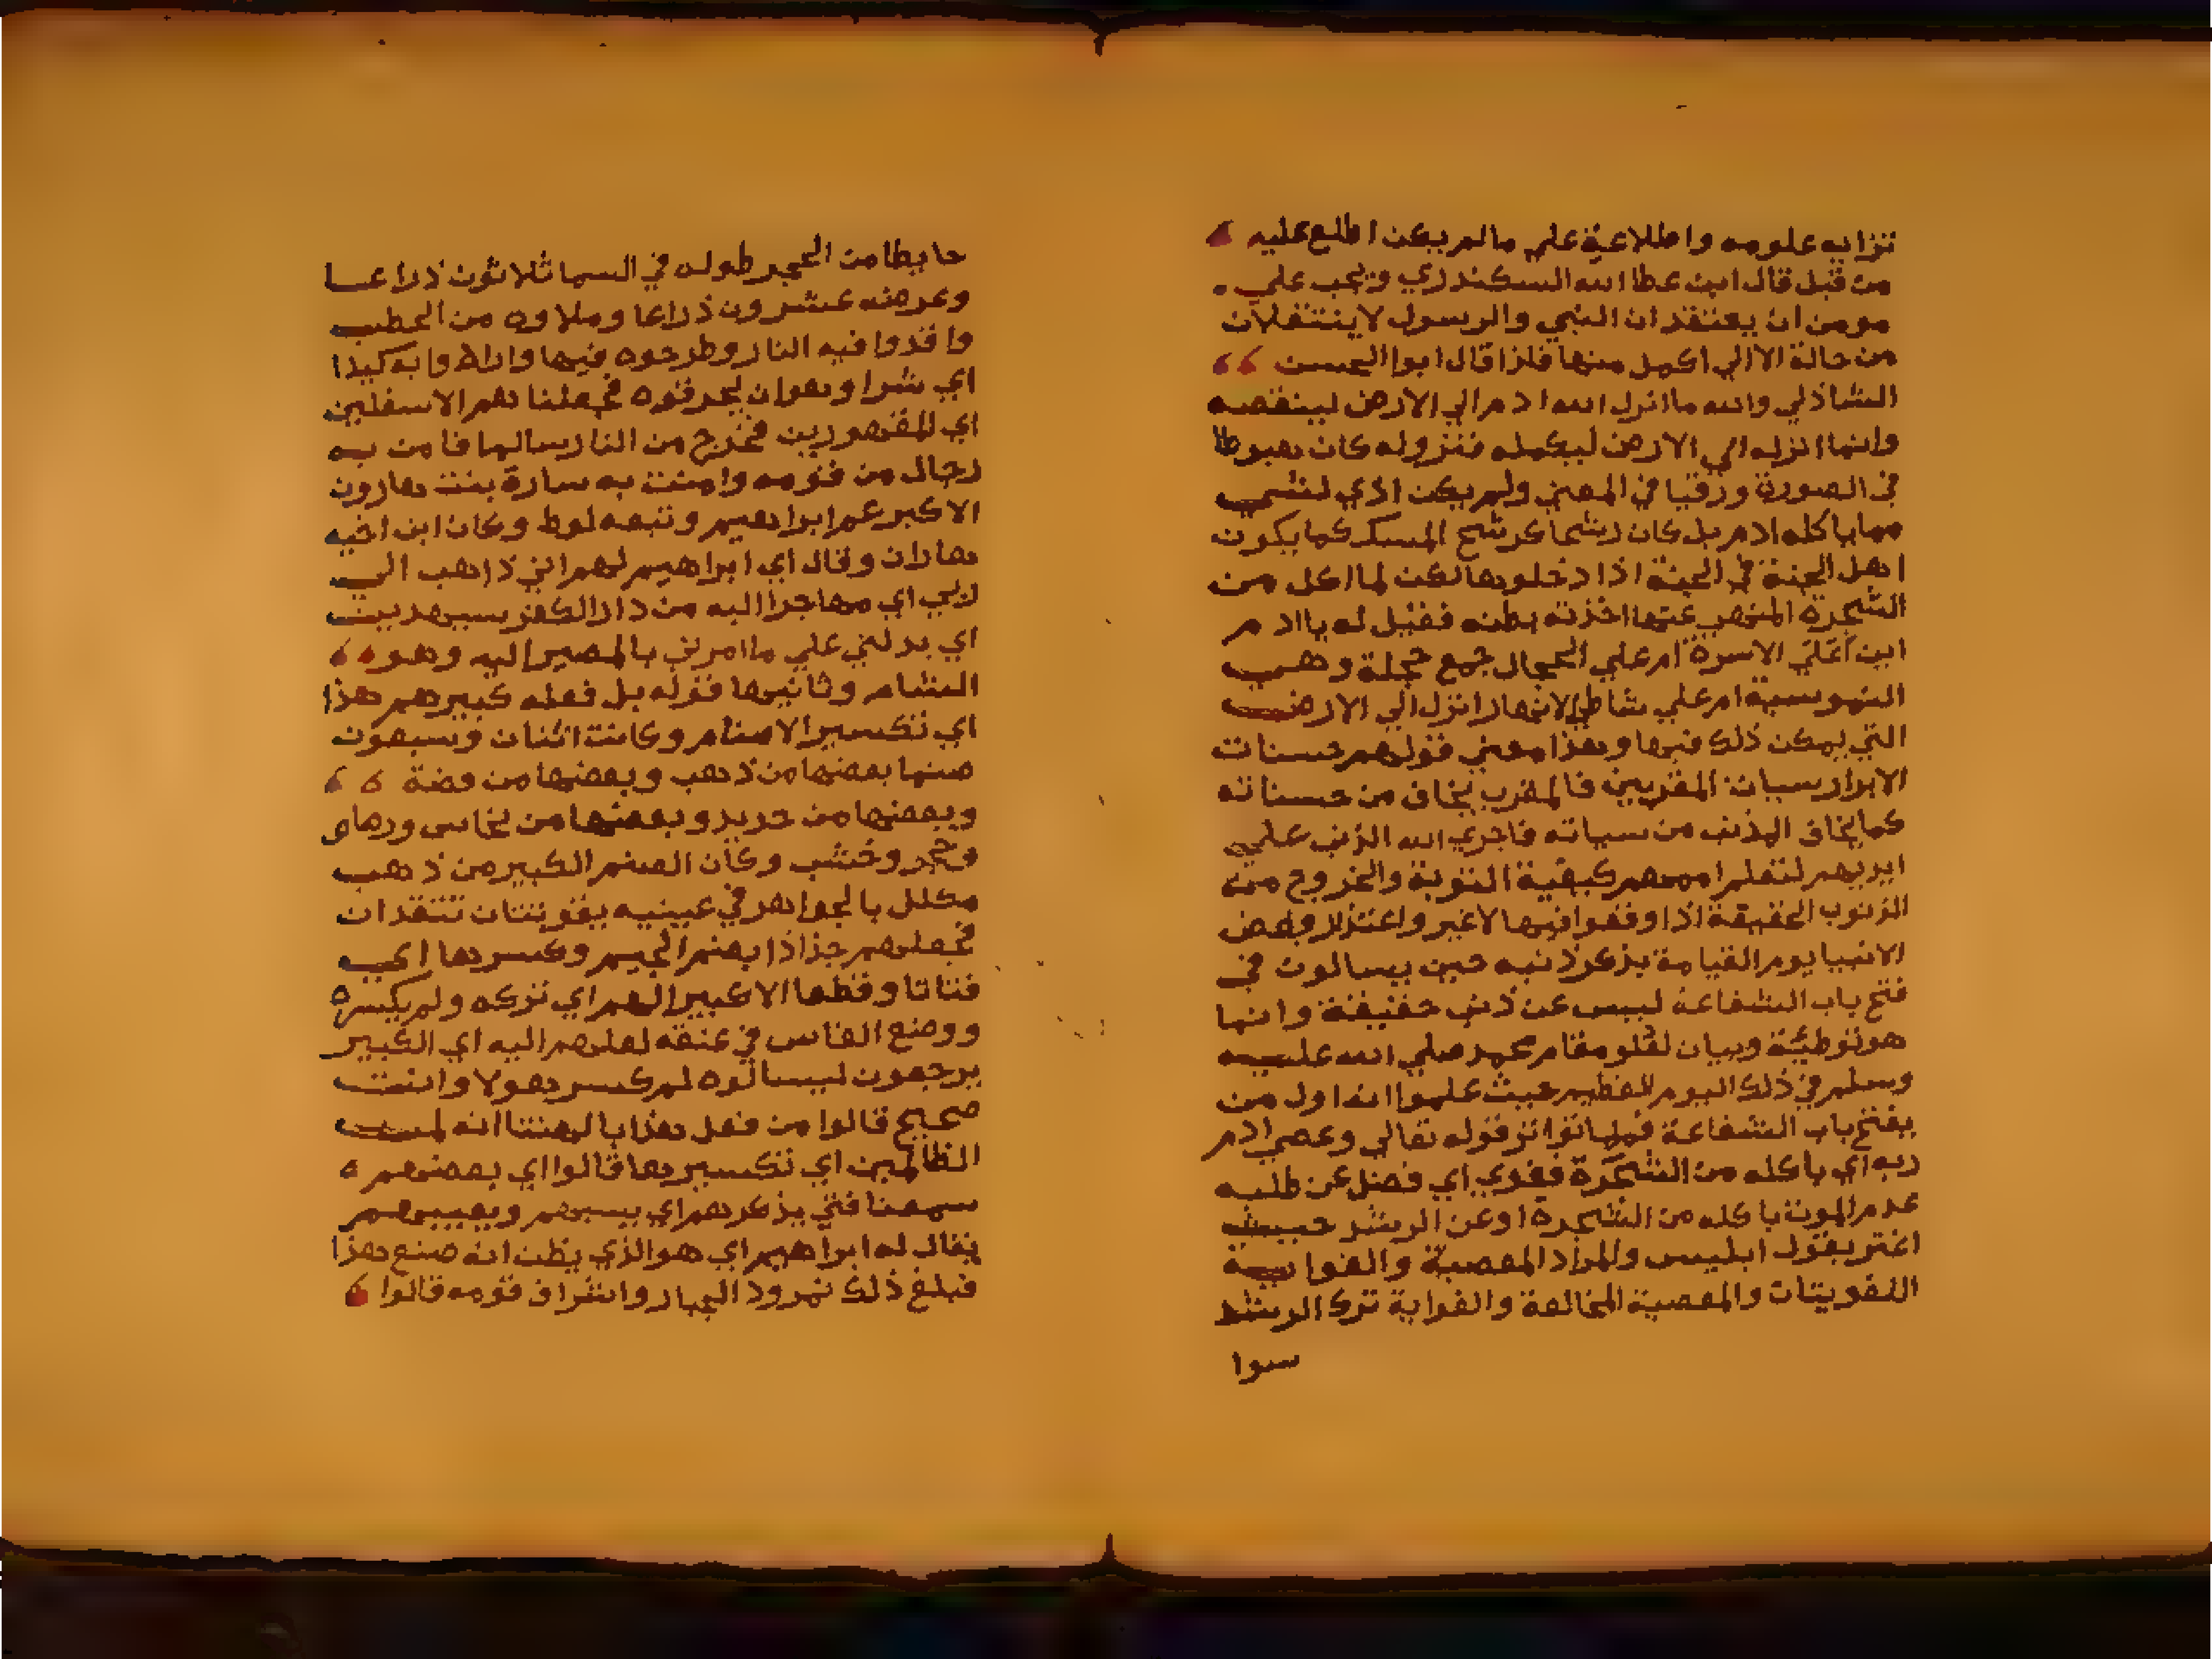 تزايه علومه واطلاعية علي مالم يكن اطلع عليه
من قبل قال ابن عطا الله السكندري ويجب علي
مومن ان يعتقد ان النبي والرسول لا ينتقلان
من حالة الا الي اكمل منها فلذا قال ابوا الحسن
الشاذلي والله ما انزل الله ادم الي الارض لينقصه
وانما انزله الي الارض ليكمله فنزوله كان هبوطا
في الصورة ورقيا في المعني ولم يكن اذي لشي
مما ياكله ادم بل كان رشحا كرشح المسك كما يكون
اهل الجنة في الجنة اذا دخلوها لكن لما اكل من
الشجرة المنهي عنها اخذته بطنه فقيل له يا ادم
اين اعلي الاسرة ام علي الحجال جمع حجلة وهي
النموسية ام علي شاطي الانهار انزل الي الارض
التي يمكن ذلك فيها وهذا معني قولهم حسنات
الابرار سيات المقربين فالمقرب يخاف من حسناته
كما يخاف المذنب من سياته فاجري الله الذنب علي
ايديهم لتعلم اممهم كيفية التوبة والخروج من
الذنوب الحقيقة اذا وقعوا فيها لا غير واعتذار وبعض
الانبيا يوم القيامة بذكر ذنبه حين يسالون في
فتح باب الشفاعة ليس عن ذنب حقيقة وانما
هو توطئة وبيان لعلو مقام محمد صلي الله عليه
وسلم في ذلك اليوم العظيم حيث علموا انه اول من
يفتح باب الشفاعة قوله تعالي وعصي ادم
ربه اي باكله من الشجرة فغوي اي فضل عن طلبه
عدم الموت باكله من الشجرة او عن الرشد حيث
اغتر بقول ابليس والمراد المعصية والغواية
التفويتات والمعصية المخالفة والغواية ترك الرشد
سوا
حايطا من الحجر طوله في السما ثلاثون ذراعا
وعرضه عشرون ذراعا وملاوه من الحطب
واقدوا فيه النار وطرحوه فيها وارادوا به كيدا
اي شرا وهوان يحرقوه فجعلناهم الاسفلين
اي المقهورين فخرج من النار سالما فامن به
رجال من قومه وامنت به سارة بنت هارون
الاكبر عم ابراهيم وتبعه لوط وكان ابن اخيه
هاران وقال اي ابراهيم لهم اني ذاهب الي
ربي اي مهاجرا اليه من دار الكفر سيهديني
اي يدلني علي ما امرني بالمصير اليه وهو
الشام وثانيها قوله بل فعله كبيرهم هذا
اي تكسير الاصنام وكانت اثنان وسبعون
صنما بعضها من ذهب وبعضها من فضة
وبعضها من حديد وبعضها من نحاس ورصاص
وحجر وخشب وكان الصنم الكبير من ذهب
مكلل بالجواهر في عينيه يقوتتان تتقدان
فجعلهم جذاذا بضم الجيم وكسرها اي
فتاتا وقطعا الا كبيرا لهم اي تركه ولم يكسره
ووضع الفاس في عنقه لعلهم اليه اي الكبير
يرجعون ليسالوه لم كسر هولا وانت
صحيح قالوا من فعل هذا بالهتنا انه لمن
الظالمين اي تكسيرها قالوا اي بعضهم
سمعنا فتي يذكرهم اي يسبهم ويعيبهم
يقال له ابراهيم اي هو الذي يظن انه صنع هذا
فبلغ ذلك نمرود الجبار واشراف قومه قالوا